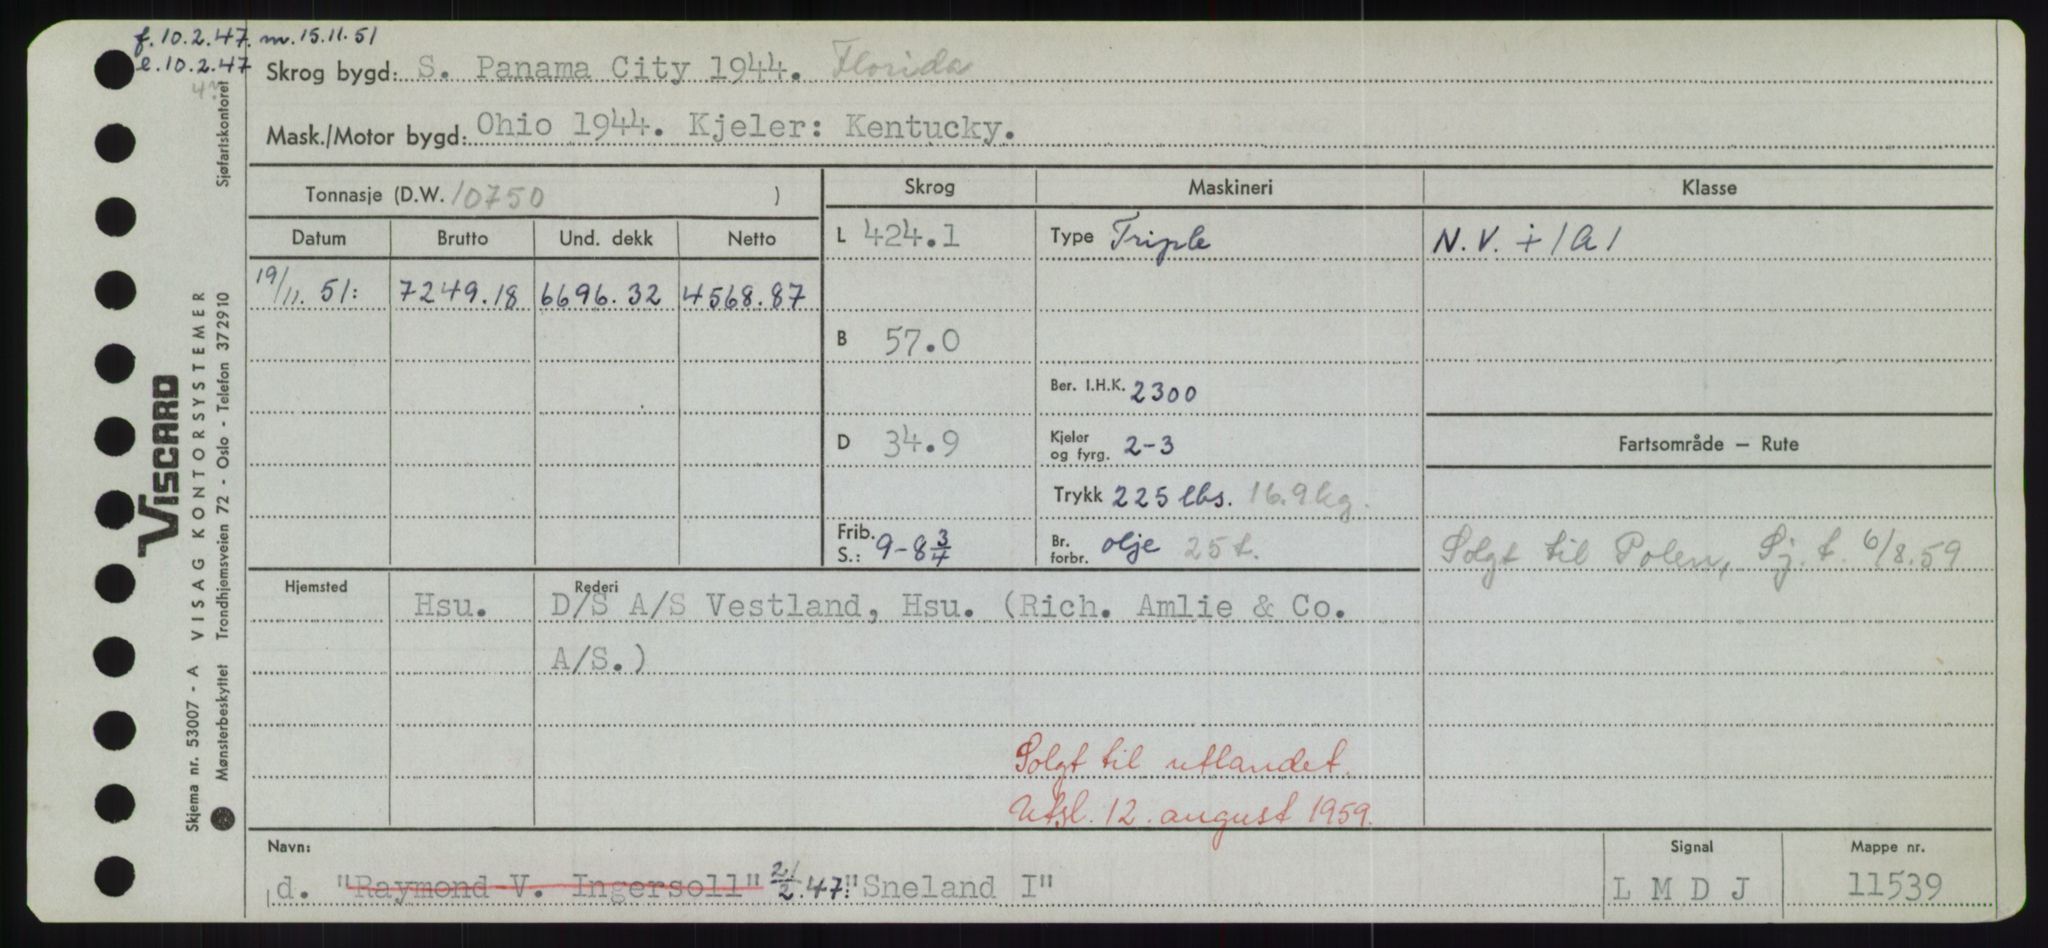 f. 10.2.47. m. 15.11.51
e. 10.2.47
Skrog bygd: S. Panama City 1944. Florida
Mask./Motor bygd: Ohio 1944. Kjeler: Kentucky.
Tonnasje (D.W. 10750 )
Skrog Maskineri Klasse
Datum Brutto Und. dekk Netto
L 424.1 Type Triple N.V. + 1A1
19/11. 51: 7249.18 6696.32 4568.87
B 57.0
Ber. I.H.K. 2300
D 34.9 Kjeler og fyrg. 2-3 Fartsområde — Rute
Trykk 225 lbs. 16.9 kg.
Frib. S.: 9-8 3/4 Br. forbr. olje 25 t. Solgt til Polen, Sj. t. 6/8.59
Hjemsted Rederi
Hsu. D/S A/S Vestland, Hsu. (Rich. Amlie & Co.
A/S.)
Solgt til utlandet.
Utsl. 12. august 1959.
Navn: Signal Mappe nr.
d. "Raymond V. Ingersoll" 21/2.47. "Sneland I" L M D J 11539
Sjøfartskontoret
VISCARD
VISAG KONTORSYSTEMER
Trondhjemsveien 72 - Oslo - Telefon 372910
Skjema nr. 53007 - A
Mønsterbeskyttet